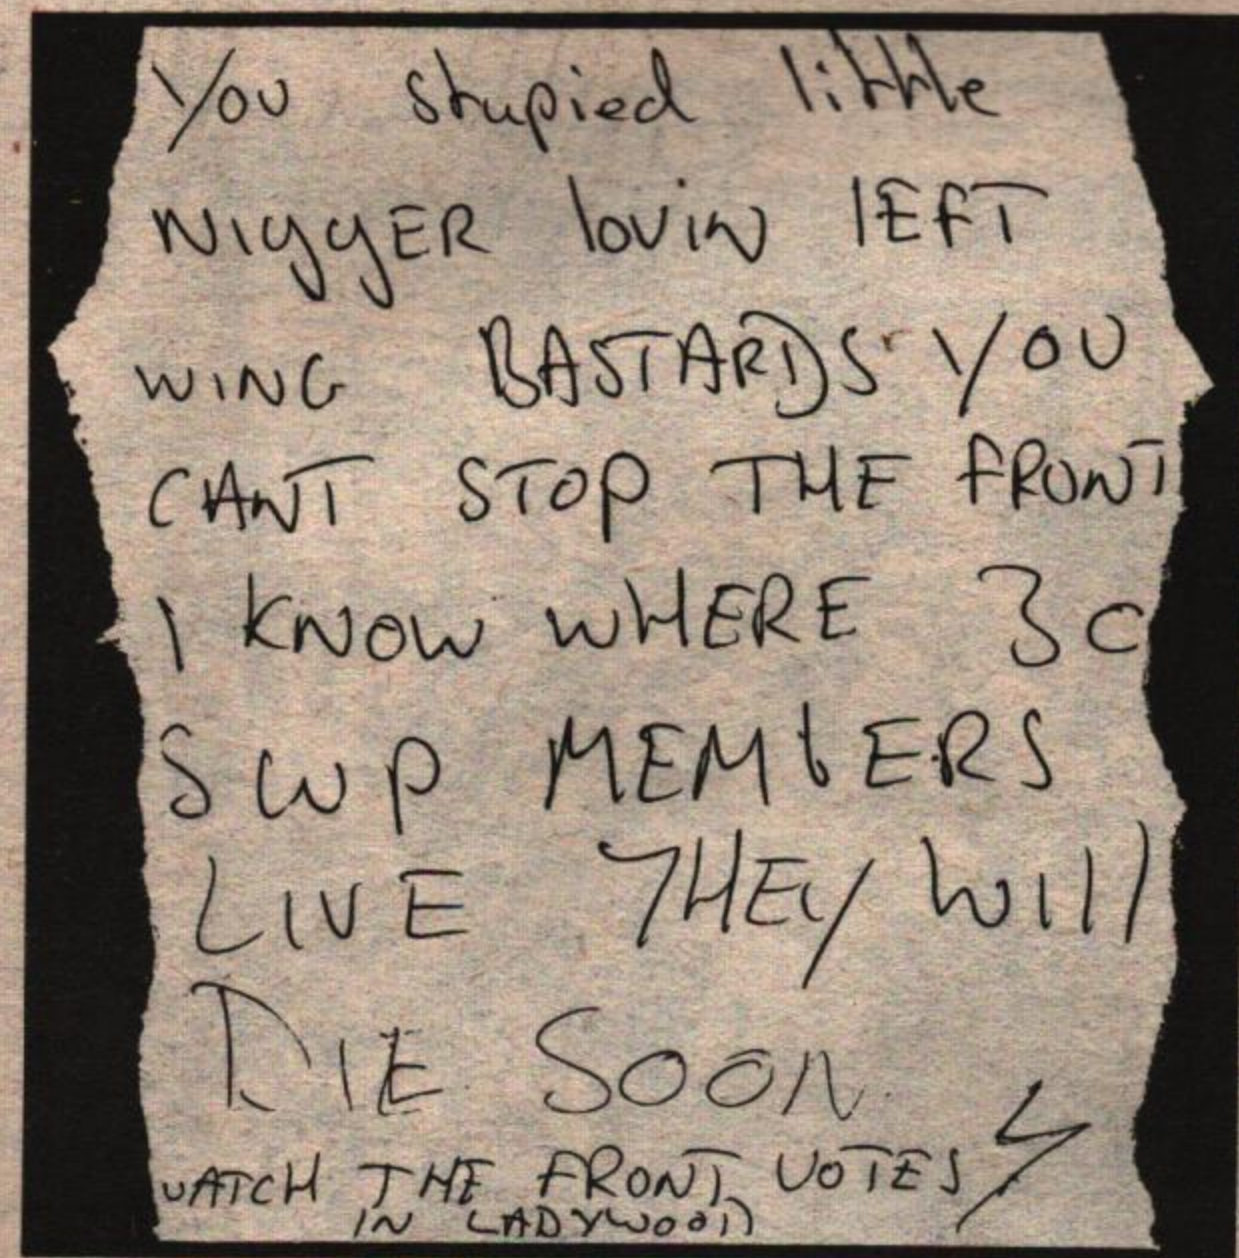 You stupied little
NIggER lovin lEFT
WING BASTARDS YOU
CANT STOP THE FRONT
I KNOW WHERE 30
SWP MEMbERS
LIVE THEY WIll
DIE SOON
WATCH THE FRONT VOTES
IN LADYWOOD